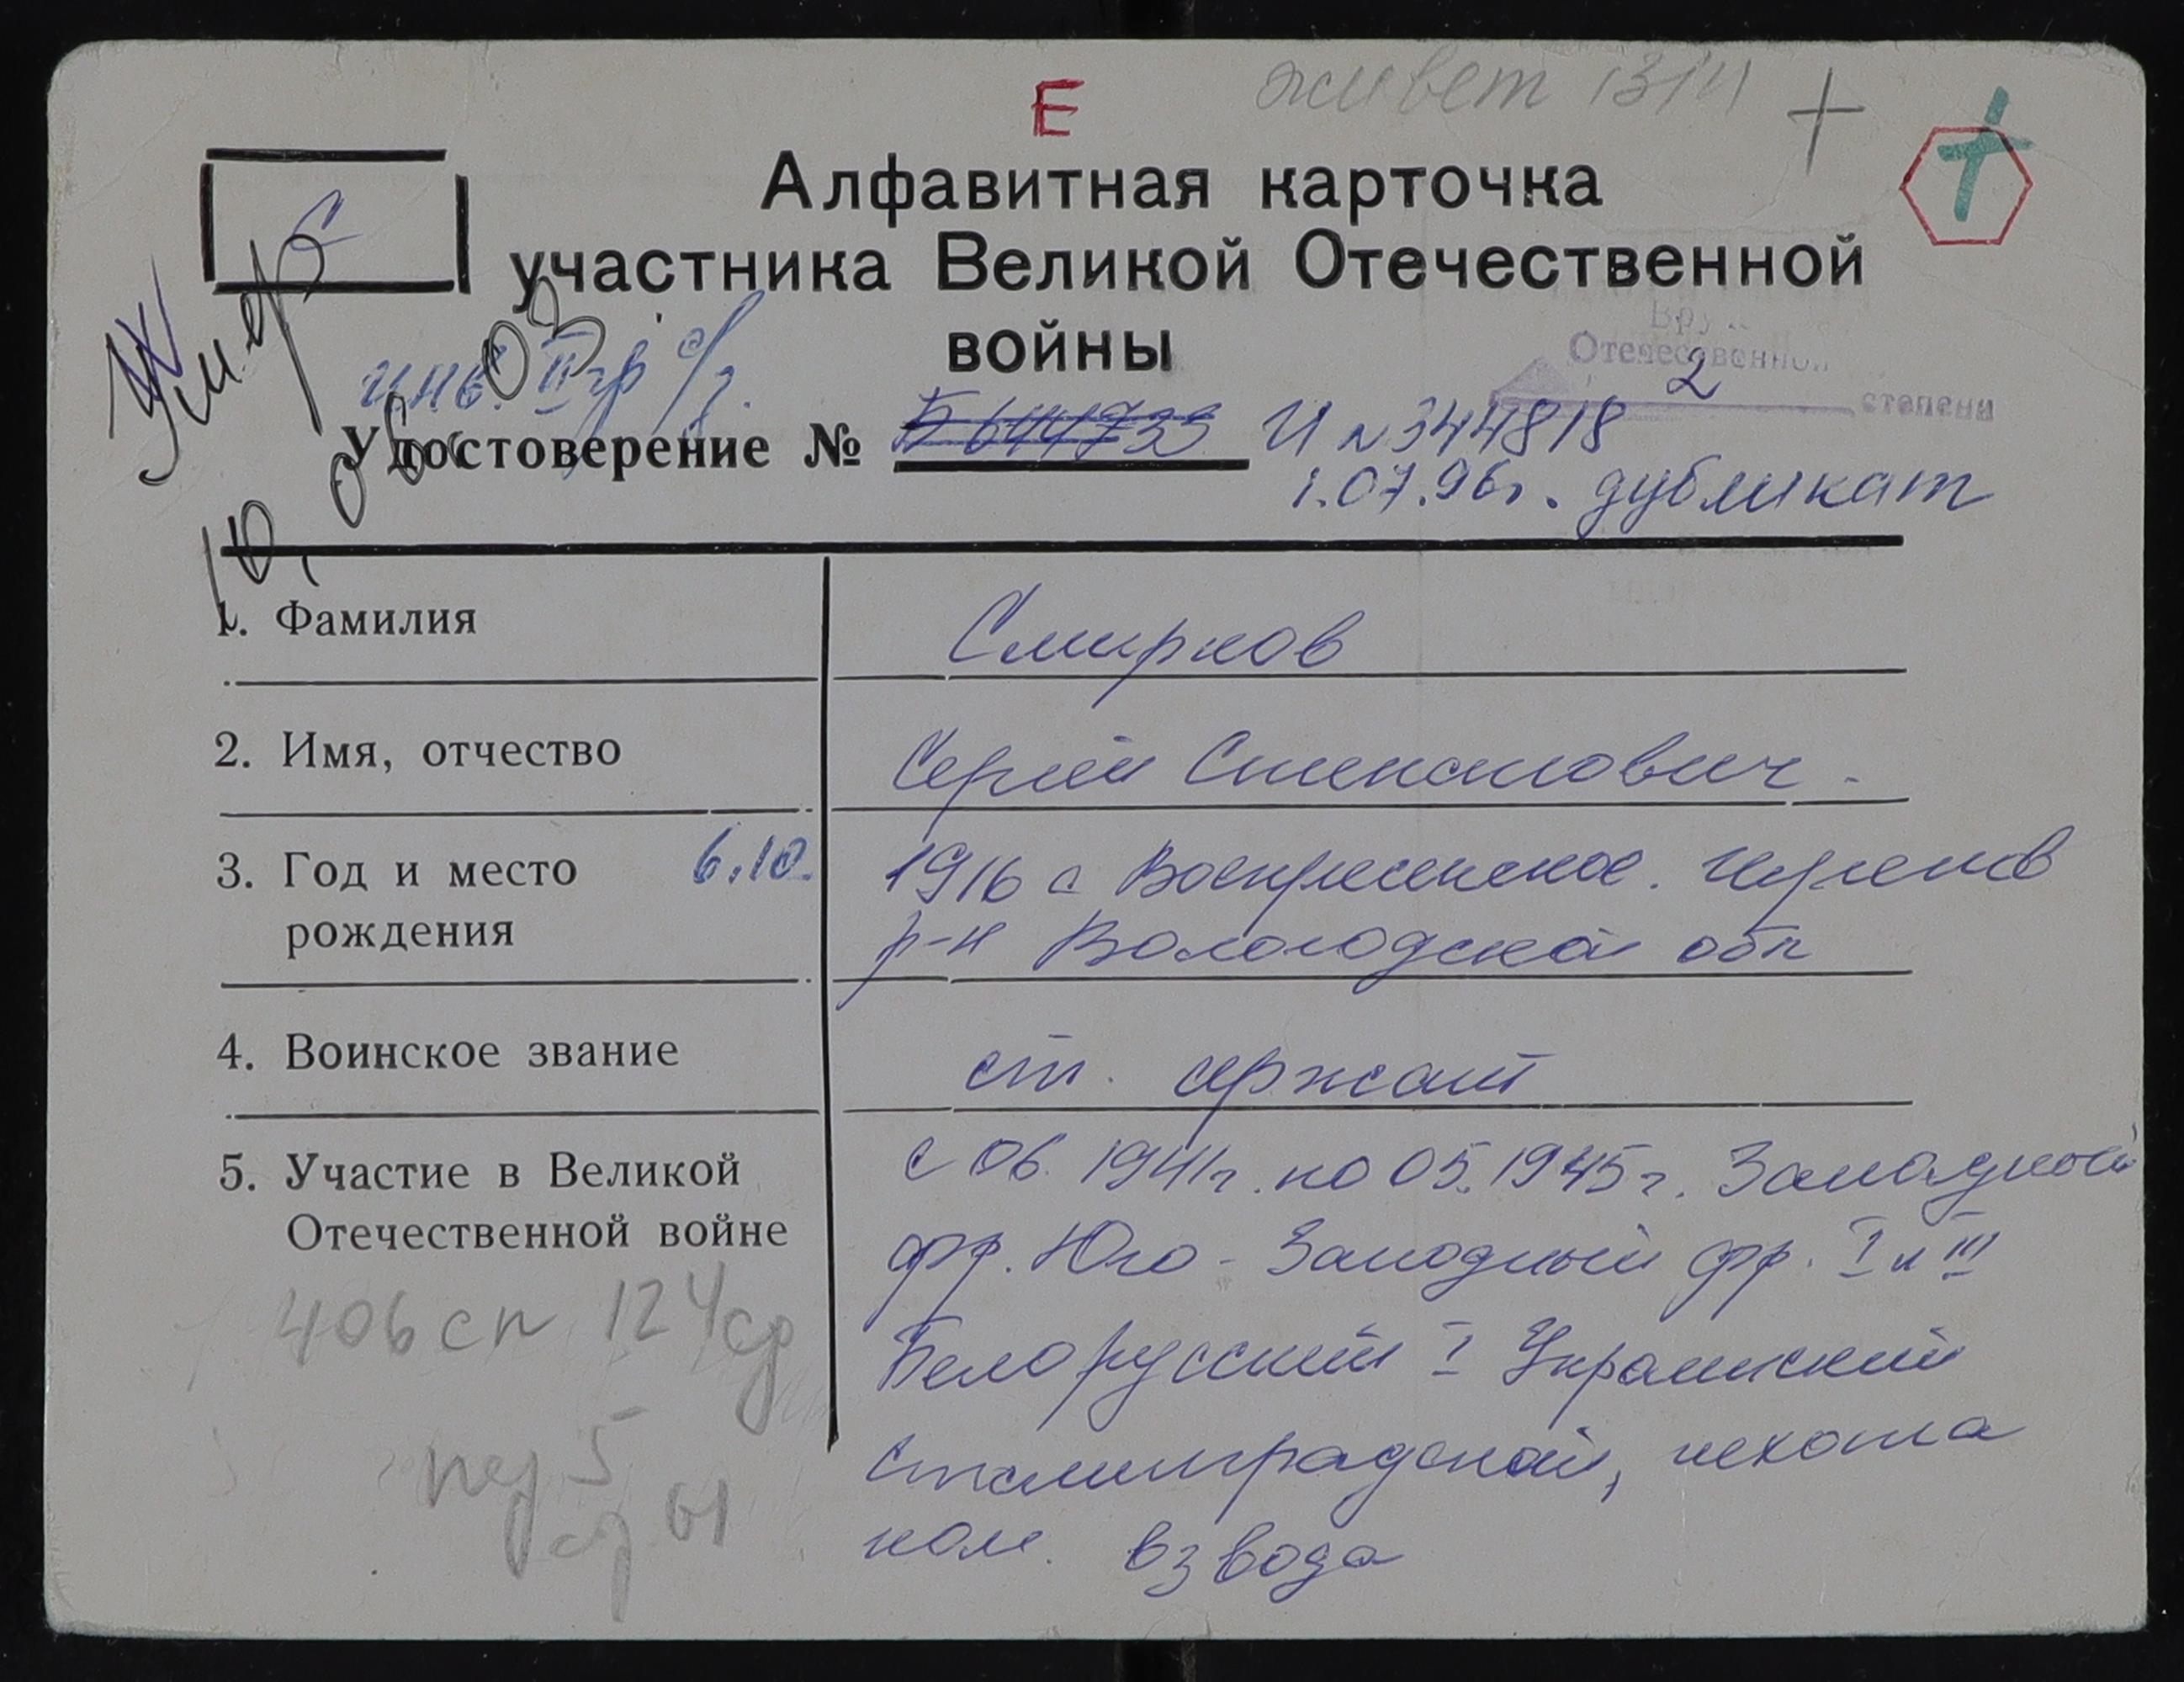 Е
живет 13/4
Алфавитная карточка
участника Великой Отечественной
войны
С
Умер
10.06.03
инв. II гр о/з.
Отечественной
2 степени
Удостоверение № Б 644733 И № 344818
1.07.96г. дубликат
1. Фамилия Смирнов
2. Имя, отчество Сергей Степанович.
3. Год и место рождения 6.10. 1916 с Воскресенское. Черепов
р-н Вологодской обл
4. Воинское звание ст. сержант
5. Участие в Великой Отечественной войне с 06. 1941г. по 05.1945г. Западный
фр. Юго-Западный фр. I и III
Белорусский I Украинский
Сталинградской, пехота
ком. взвода
406 сп 124 сд